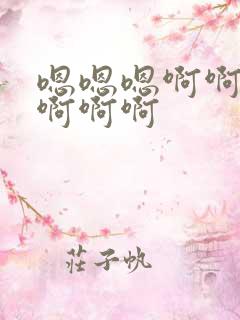 嗯嗯嗯啊啊
啊啊啊
莊子帆